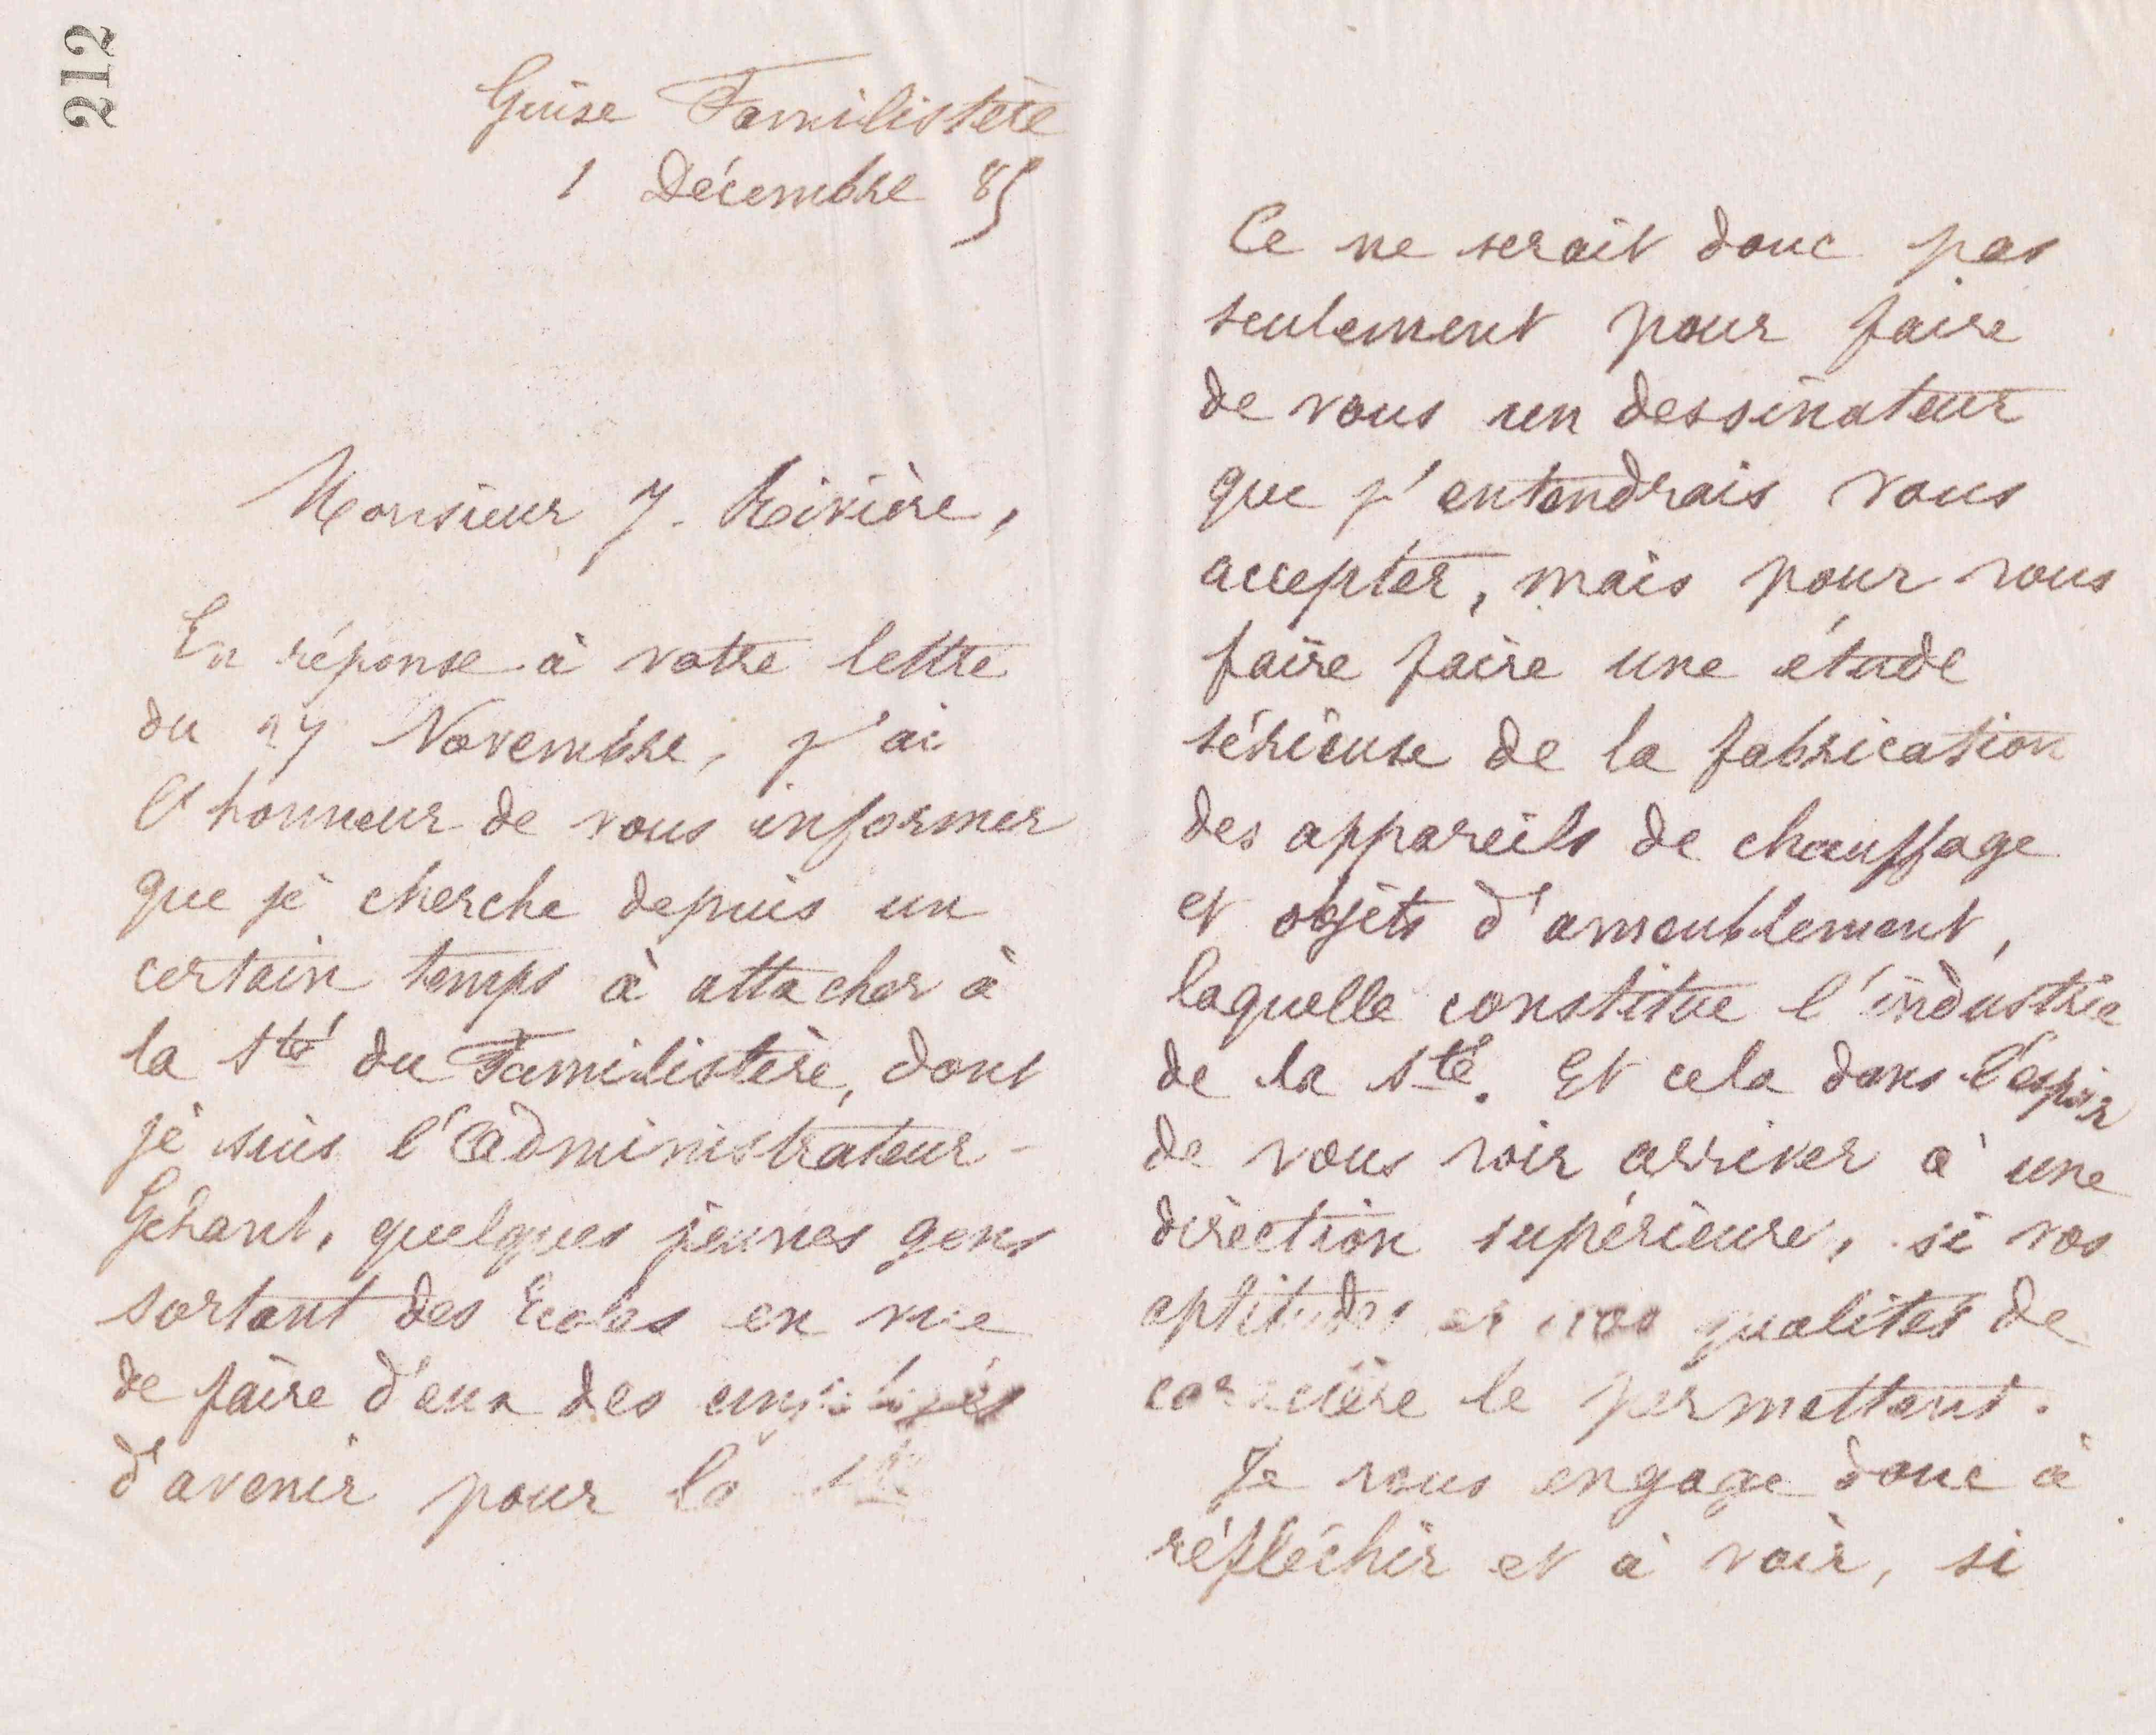 212
Guise Familistère
1 Décembre 85
Monsieur J. Rivière,
En réponse à votre lettre
du 27 Novembre, j'ai
l'honneur de vous informer
que je cherche depuis un
certain temps à attacher à
la Sté du Familistère, dont
je suis l'Administrateur-
Gérant, quelques jeunes gens
sortant des Ecoles en vue
de faire d'eux des employés
d'avenir pour la Sté
Ce ne serait donc pas
seulement pour faire
de vous un dessinateur
que j'entendrais vous
accepter, mais pour vous
faire faire une étude
sérieuse de la fabrication
des appareils de chauffage
et objets d'ameublement,
laquelle constitue l'industrie
de la Sté. Et cela dans l'espoir
de vous voir arriver à une
direction supérieure, si vos
aptitudes et vos qualités de
caractère le permettant.
Je vous engage donc à
réfléchir et à voir, si